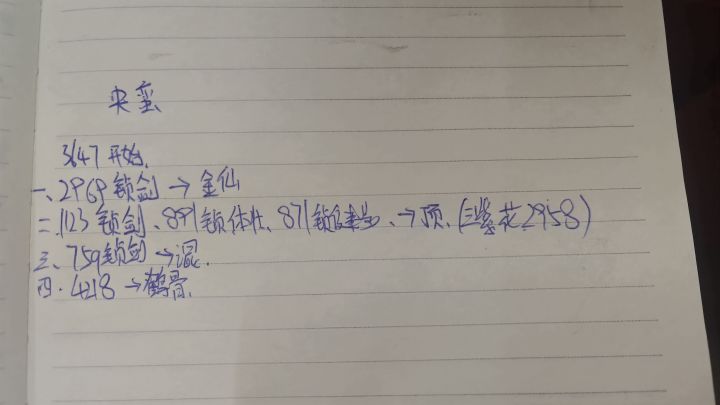 央蛮
3647开始.
一、2969锁剑→金仙
二、1123锁剑、891锁体壮、871锁健步、→顶.(三紫花2958)
三、759锁剑→混.
四.4218→鹤骨.